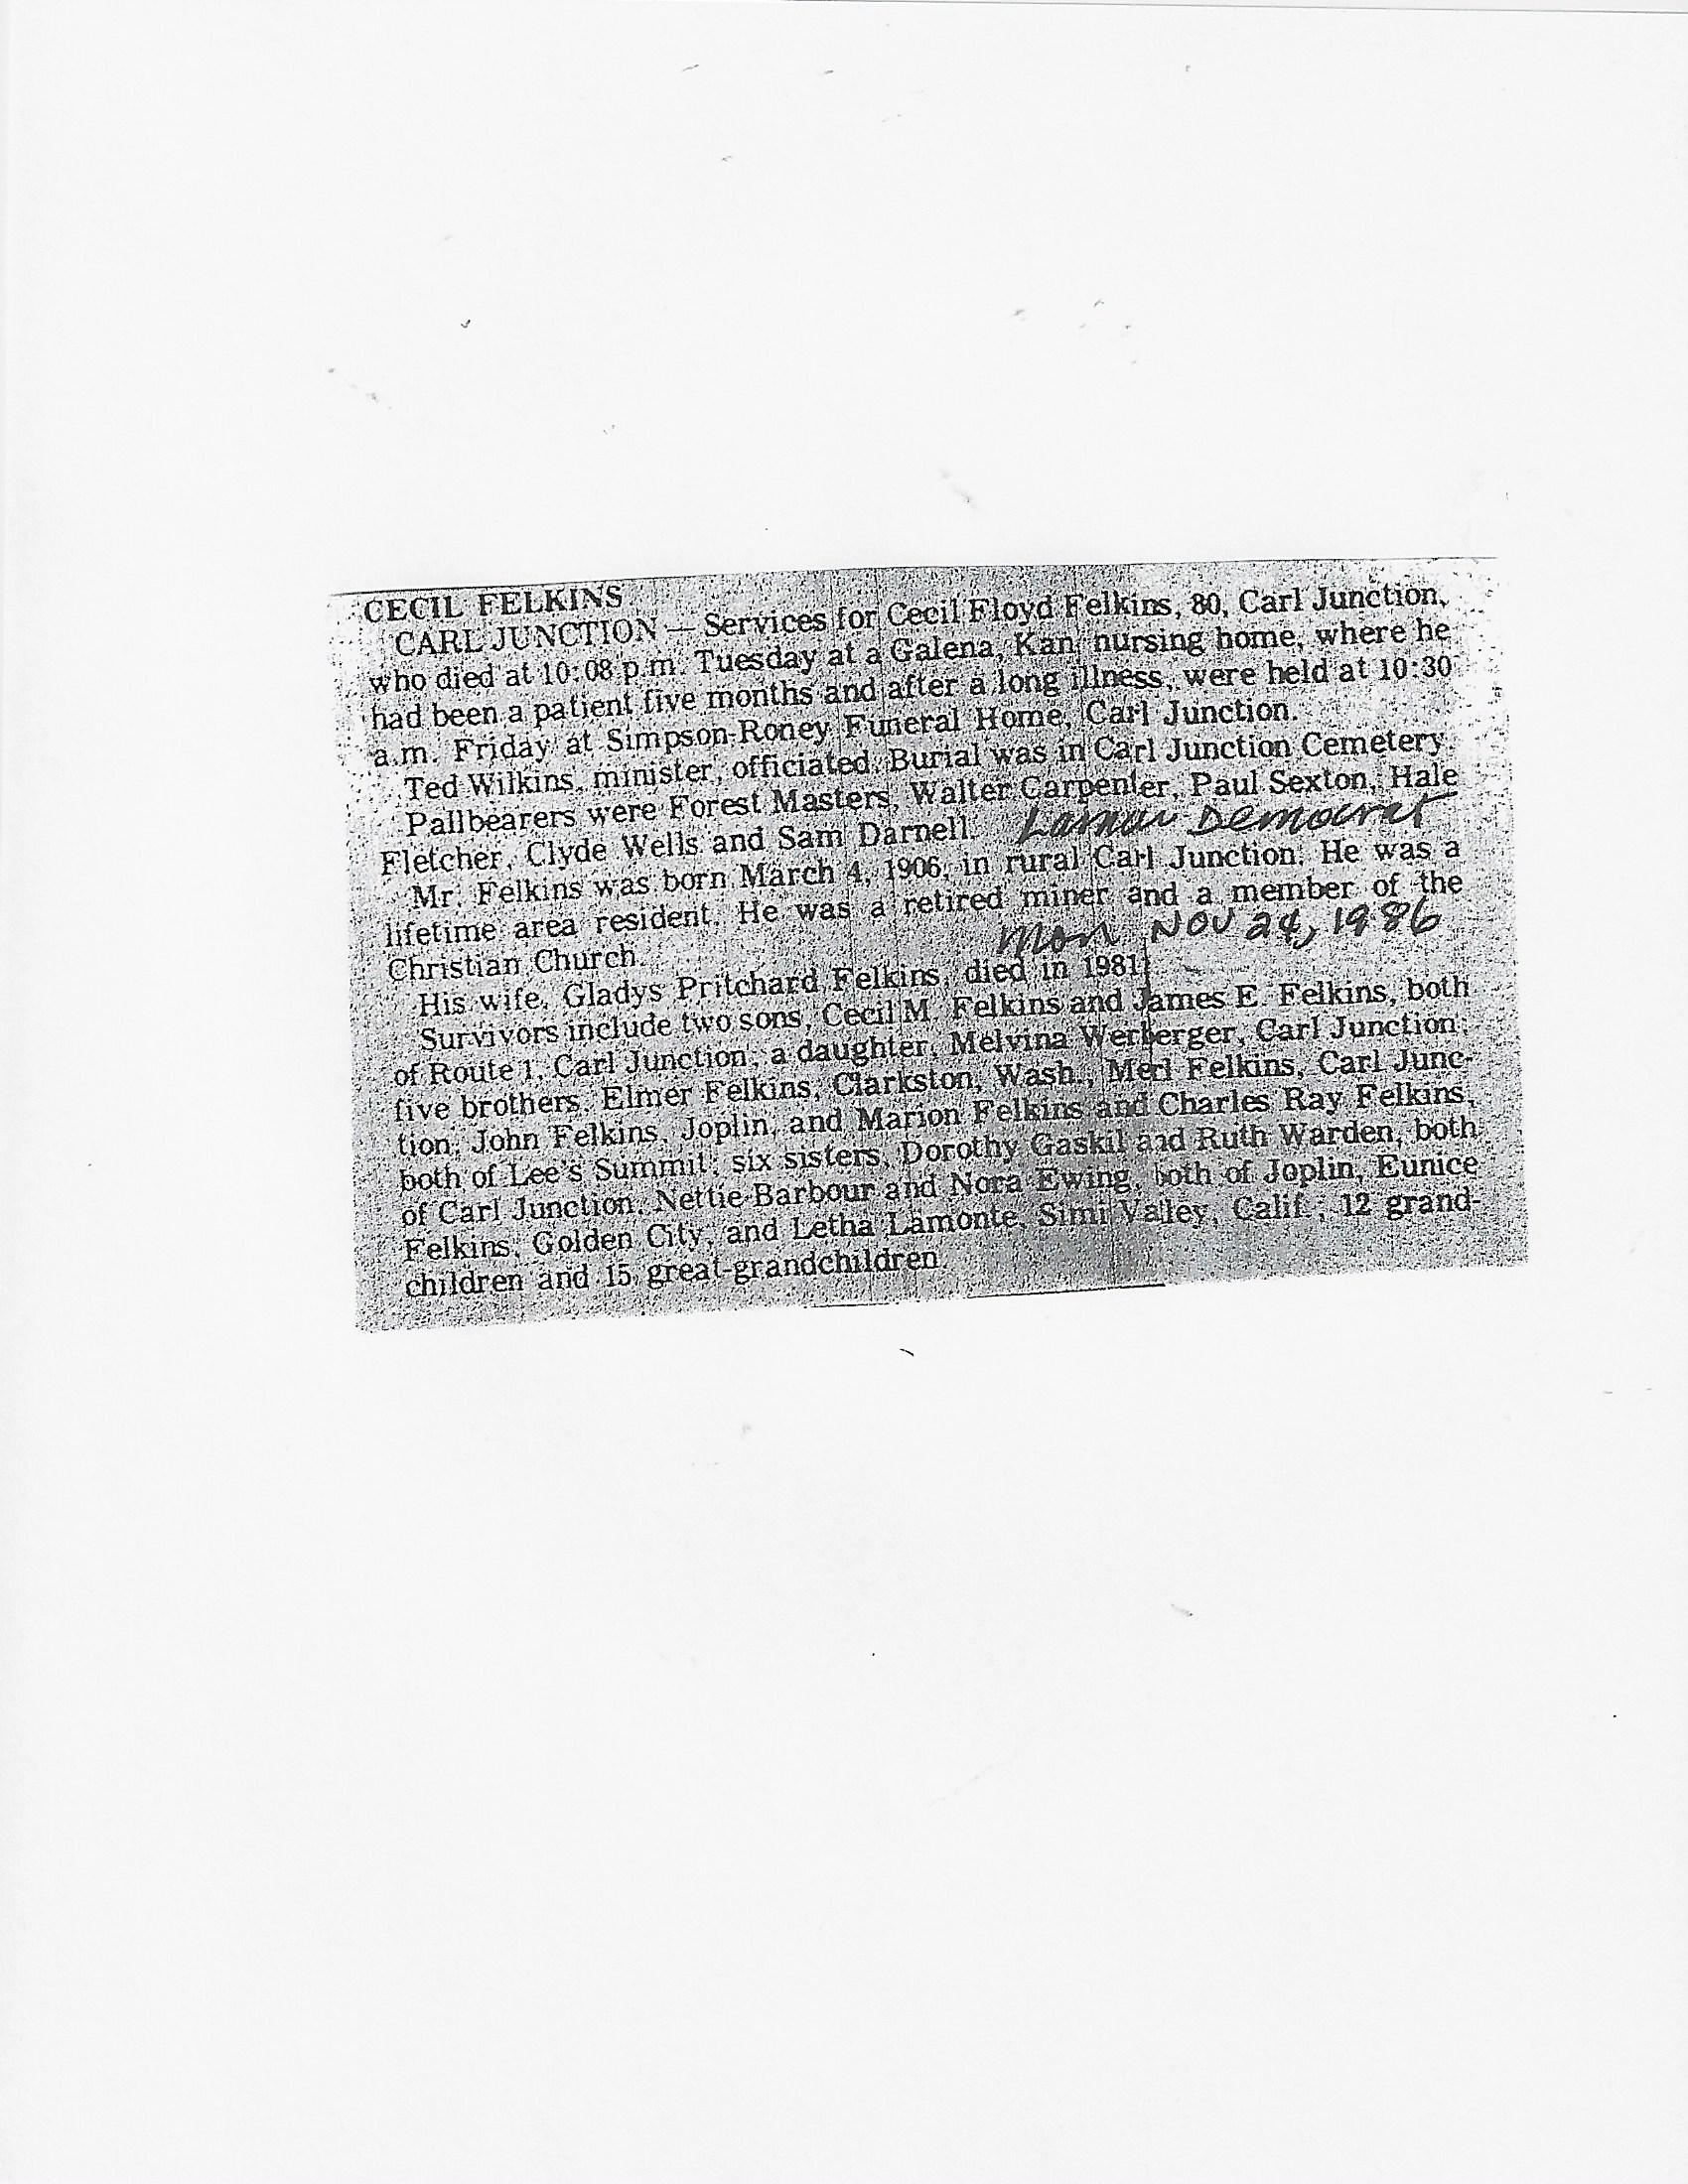 CECIL FELKINS
CARL JUNCTION — Services for Cecil Floyd Felkins, 80, Carl Junction,
who died at 10:08 p.m. Tuesday at a Galena, Kan. nursing home, where he
had been a patient five months and after a long illness, were held at 10:30
a.m. Friday at Simpson-Roney Funeral Home, Carl Junction.
Ted Wilkins, minister, officiated. Burial was in Carl Junction Cemetery.
Pallbearers were Forest Masters, Walter Carpenter, Paul Sexton, Hale
Fletcher, Clyde Wells and Sam Darnell.
Lamar Democrat
Mr. Felkins was born March 4, 1906, in rural Carl Junction. He was a
lifetime area resident. He was a retired miner and a member of the
Christian Church.
Mon Nov 24, 1986
His wife, Gladys Pritchard Felkins, died in 1981.
Survivors include two sons, Cecil M. Felkins and James E. Felkins, both
of Route 1, Carl Junction; a daughter, Melvina Werberger, Carl Junction;
five brothers, Elmer Felkins, Clarkston, Wash., Merl Felkins, Carl Junc-
tion, John Felkins, Joplin, and Marion Felkins and Charles Ray Felkins,
both of Lee's Summit; six sisters, Dorothy Gaskil and Ruth Warden, both
of Carl Junction, Nettie Barbour and Nora Ewing, both of Joplin, Eunice
Felkins, Golden City, and Letha Lamonte, Simi Valley, Calif.; 12 grand-
children and 15 great-grandchildren.